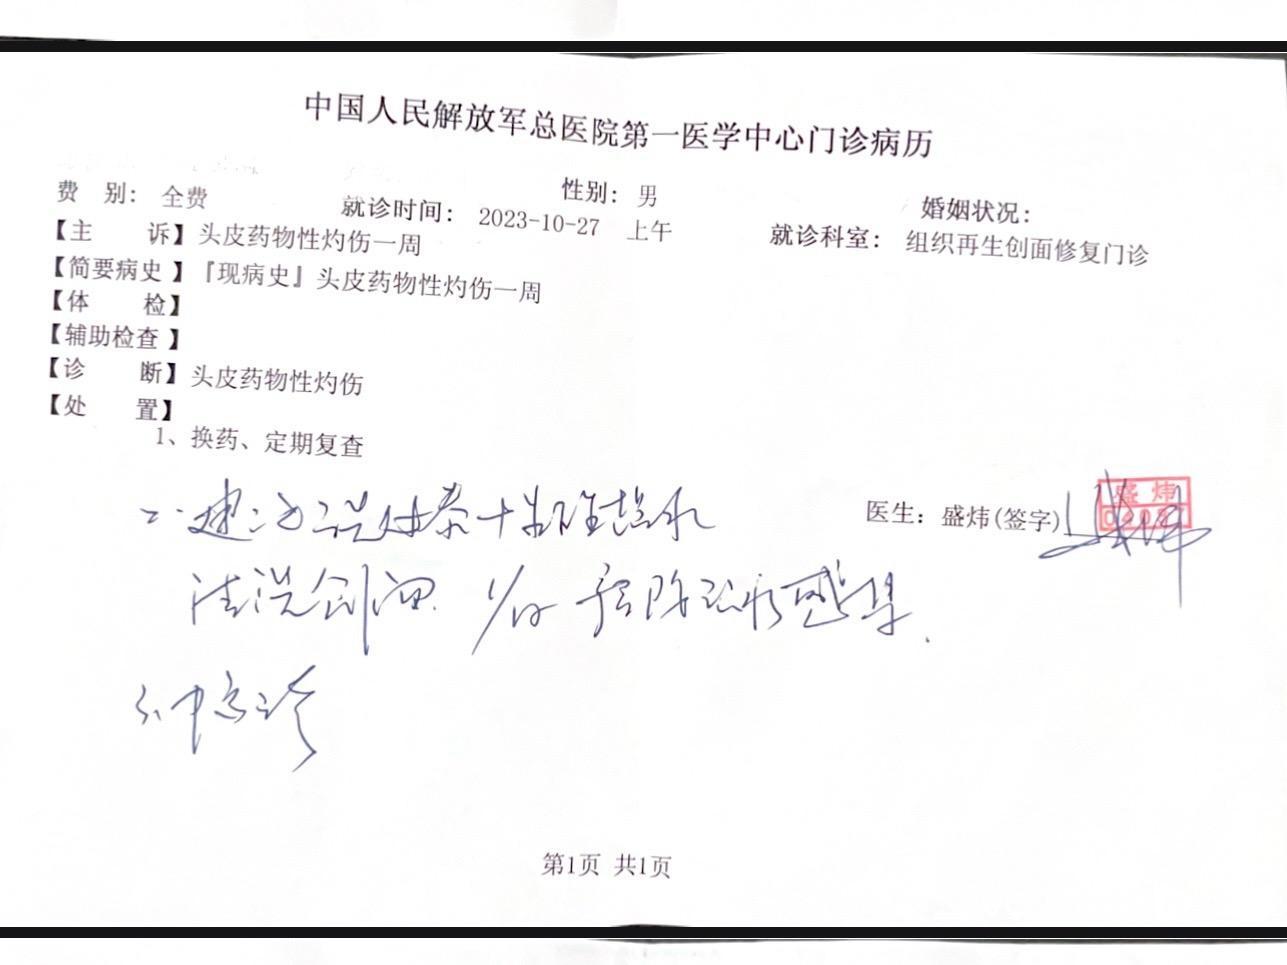 中国人民解放军总医院第一医学中心门诊病历
费 别: 全费 性别: 男 婚姻状况:
就诊时间: 2023-10-27 上午 就诊科室: 组织再生创面修复门诊
【主 诉】头皮药物性灼伤一周
【简要病史】『现病史』头皮药物性灼伤一周
【体 检】
【辅助检查】
【诊 断】头皮药物性灼伤
【处 置】
1、换药、定期复查
二、建议
医生: 盛炜(签字) 盛炜
清洗创面 1/日 预防 感染.
第1页 共1页